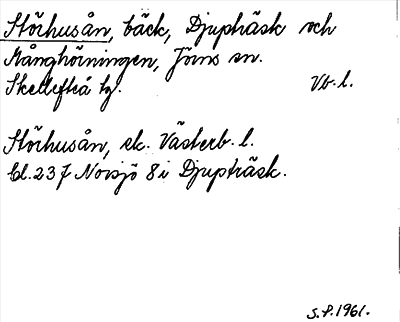 Störhusån, bäck, Djupträsk och
Månghörningen, Jörns sn.
Skellefteå tg. Vb. l.
Störhusån, ek. Västerb. l.
bl. 237 Norsjö 8 i Djupträsk.
S.P. 1961.